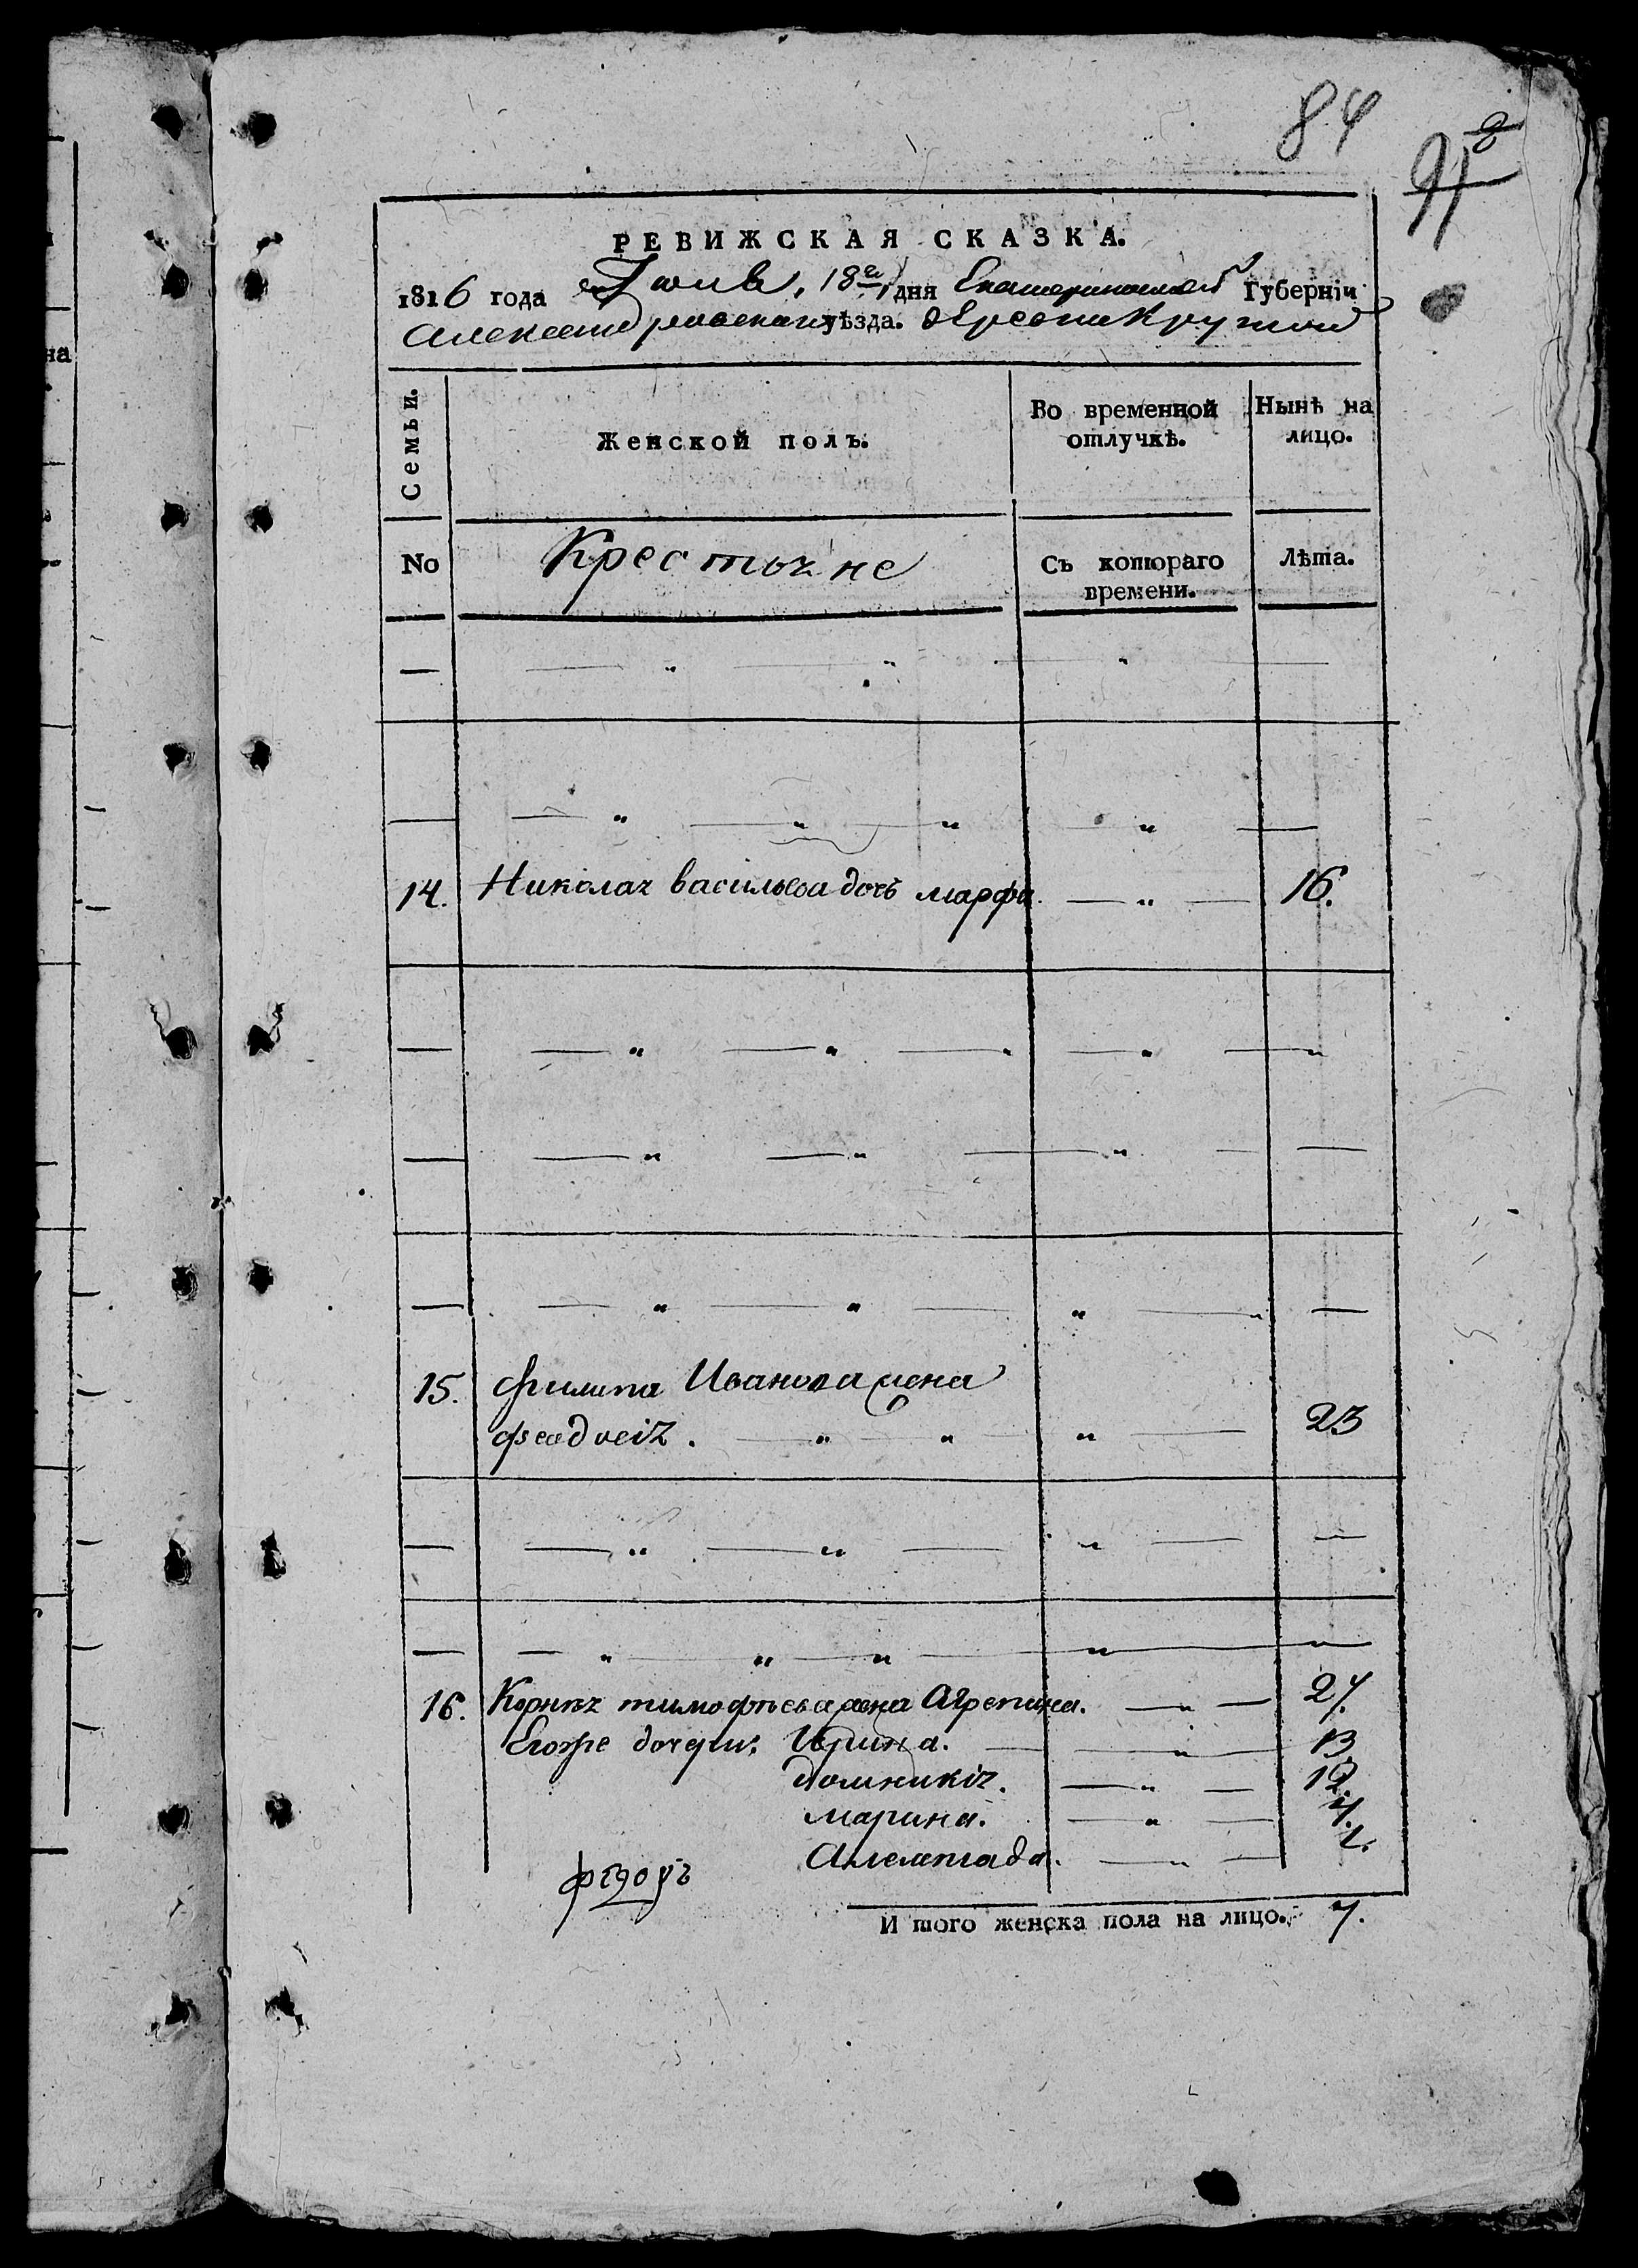 84
91
РЕВИЖСКАЯ СКАЗКА.
1816 года Июля, 18го дня Екатеринославской Губерніи
Александровскаго уѣзда. деревни Крутой
Семьи.
Женской полъ.
Во временной отлучкѣ.
Нынѣ на лицо.
No
Крестьяне
Съ котораго времени.
Лѣта.
14. Николая васильева дочь марфа. — „ — 16.
15. филипа Иванова жена
феодосія. — „ — „ „ — 23
16. Корнѣя тимофѣева жена Агрепина. — „ — 27.
Егоже дочери: Ирина. — „ — 13
домникія. — „ — 12.
марина. — „ — 4.
— „ — 1.
И того женска пола на лицо. 7.